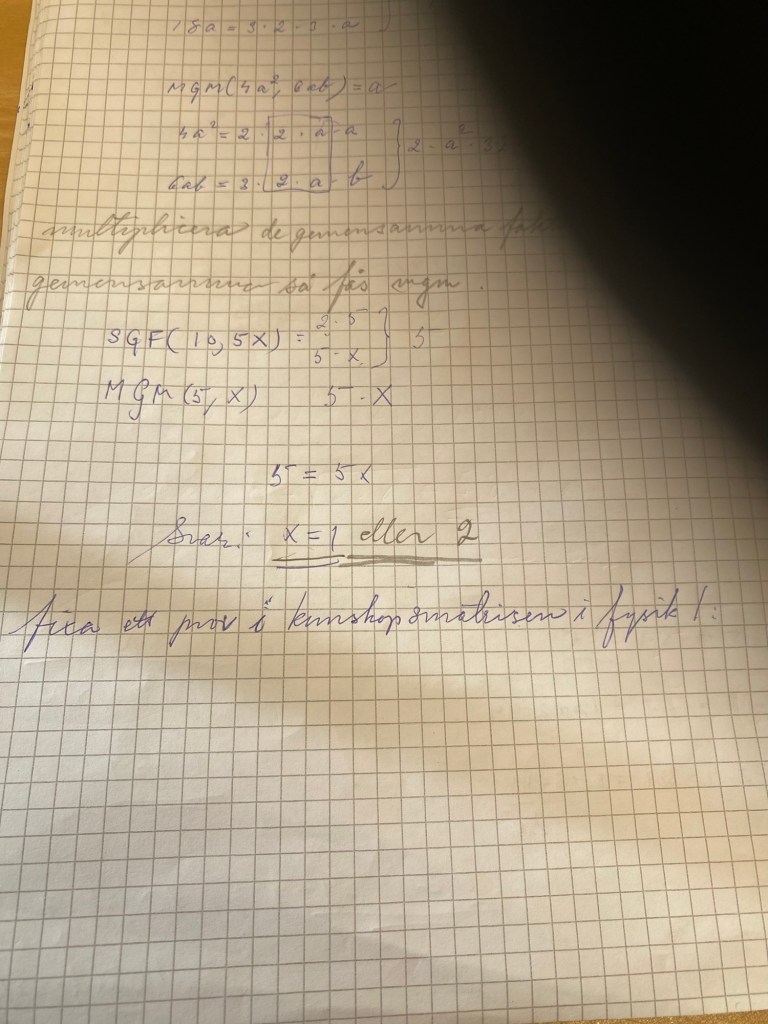 18a = 3·2·3·a }
MGM(4a², 6ab) = a
4a² = 2·2·a·a } 2·a²·3
6ab = 3·2·a·b
multiplicera de gemensamma
gemensamma så fås mgm.
SGF(10, 5x) = 2·5 } 5
5·x
MGM(5, x) 5·x
5 = 5x
Svar: x=1 eller 2
fixa ett prov i kunskapsmatrisen i fysik 1: